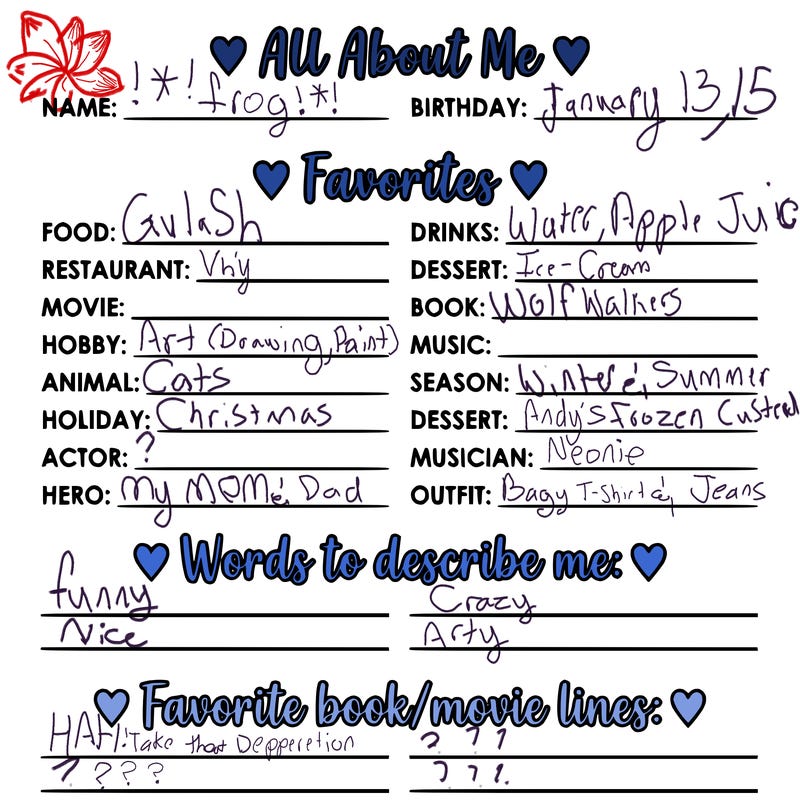 All About Me
NAME: !*!frog!*! BIRTHDAY: January 13,15
Favorites
FOOD: GulaSh DRINKS: Water, Apple Juic
RESTAURANT: DESSERT: Ice-Cream
MOVIE: BOOK: Wolf Walkers
HOBBY: Art (Drawing, Paint) MUSIC:
ANIMAL: Cats SEASON: Winter &, Summer
HOLIDAY: Christmas DESSERT: Andy's Frozen
ACTOR: ? MUSICIAN: Neonie
HERO: My MOM & Dad OUTFIT: Bagy T-Shirt & Jeans
Words to describe me:
funny Crazy
Nice Arty
Favorite book/movie lines:
HAH! Take that Depperetion ? ? ?
? ? ? ? ? ? ?.